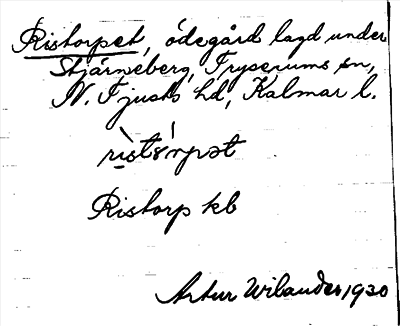 Ristorpet, ödegård lagd under
Stjärneberg, Tryserums sn,
N. Tjusts hd, Kalmar l.
Ristorp kb
Artur Wilander 1930